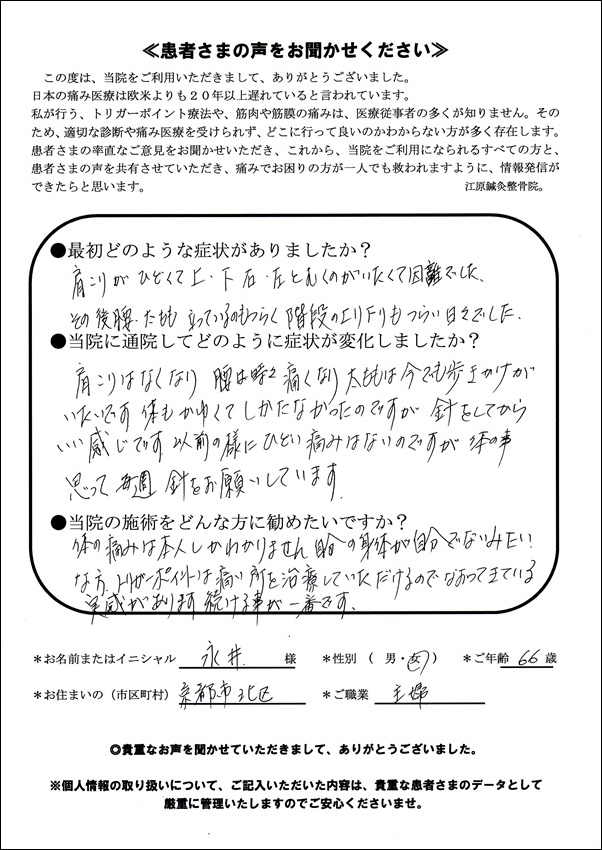 ≪患者さまの声をお聞かせください≫
この度は、当院をご利用いただきまして、ありがとうございました。
日本の痛み医療は欧米よりも20年以上遅れていると言われています。
私が行う、トリガーポイント療法や、筋肉や筋膜の痛みは、医療従事者の多くが知りません。その
ため、適切な診断や痛み医療を受けられず、どこに行って良いのかわからない方が多く存在します。
患者さまの率直なご意見をお聞かせいただき、これから、当院をご利用になられるすべての方と、
患者さまの声を共有させていただき、痛みでお困りの方が一人でも救われますように、情報発信が
できたらと思います。 江原鍼灸整骨院。
●最初どのような症状がありましたか？
肩こりがひどくて上・下 右・左とむくのがいたくて困難でした。
その後腰・たもも 立っているのもつらく 階段の上り下りもつらい日々でした.
●当院に通院してどのように症状が変化しましたか？
肩こりはなくなり 腰は時々痛くなり 太ももは今でも歩きかけが
いたいです 体もかゆくてしかたなかったのですが 針をしてから
いい感じです 以前の様にひどい痛みはないのですが 体の事
思って毎週 針をお願いしています.
●当院の施術をどんな方に勧めたいですか？
体の痛みは本人しかわかりません 自分の身体が自分でないみたい
な方、トリガーポイントは痛い所を治療していただけるのでなおってきている
実感があります 続ける事が一番です.
＊お名前またはイニシャル 永井 様 ＊性別（ 男・女 ） ＊ご年齢 66 歳
＊お住まいの（市区町村） 京都市北区 ＊ご職業 主婦
◎貴重なお声を聞かせていただきまして、ありがとうございました。
※個人情報の取り扱いについて、ご記入いただいた内容は、貴重な患者さまのデータとして
厳重に管理いたしますのでご安心くださいませ。